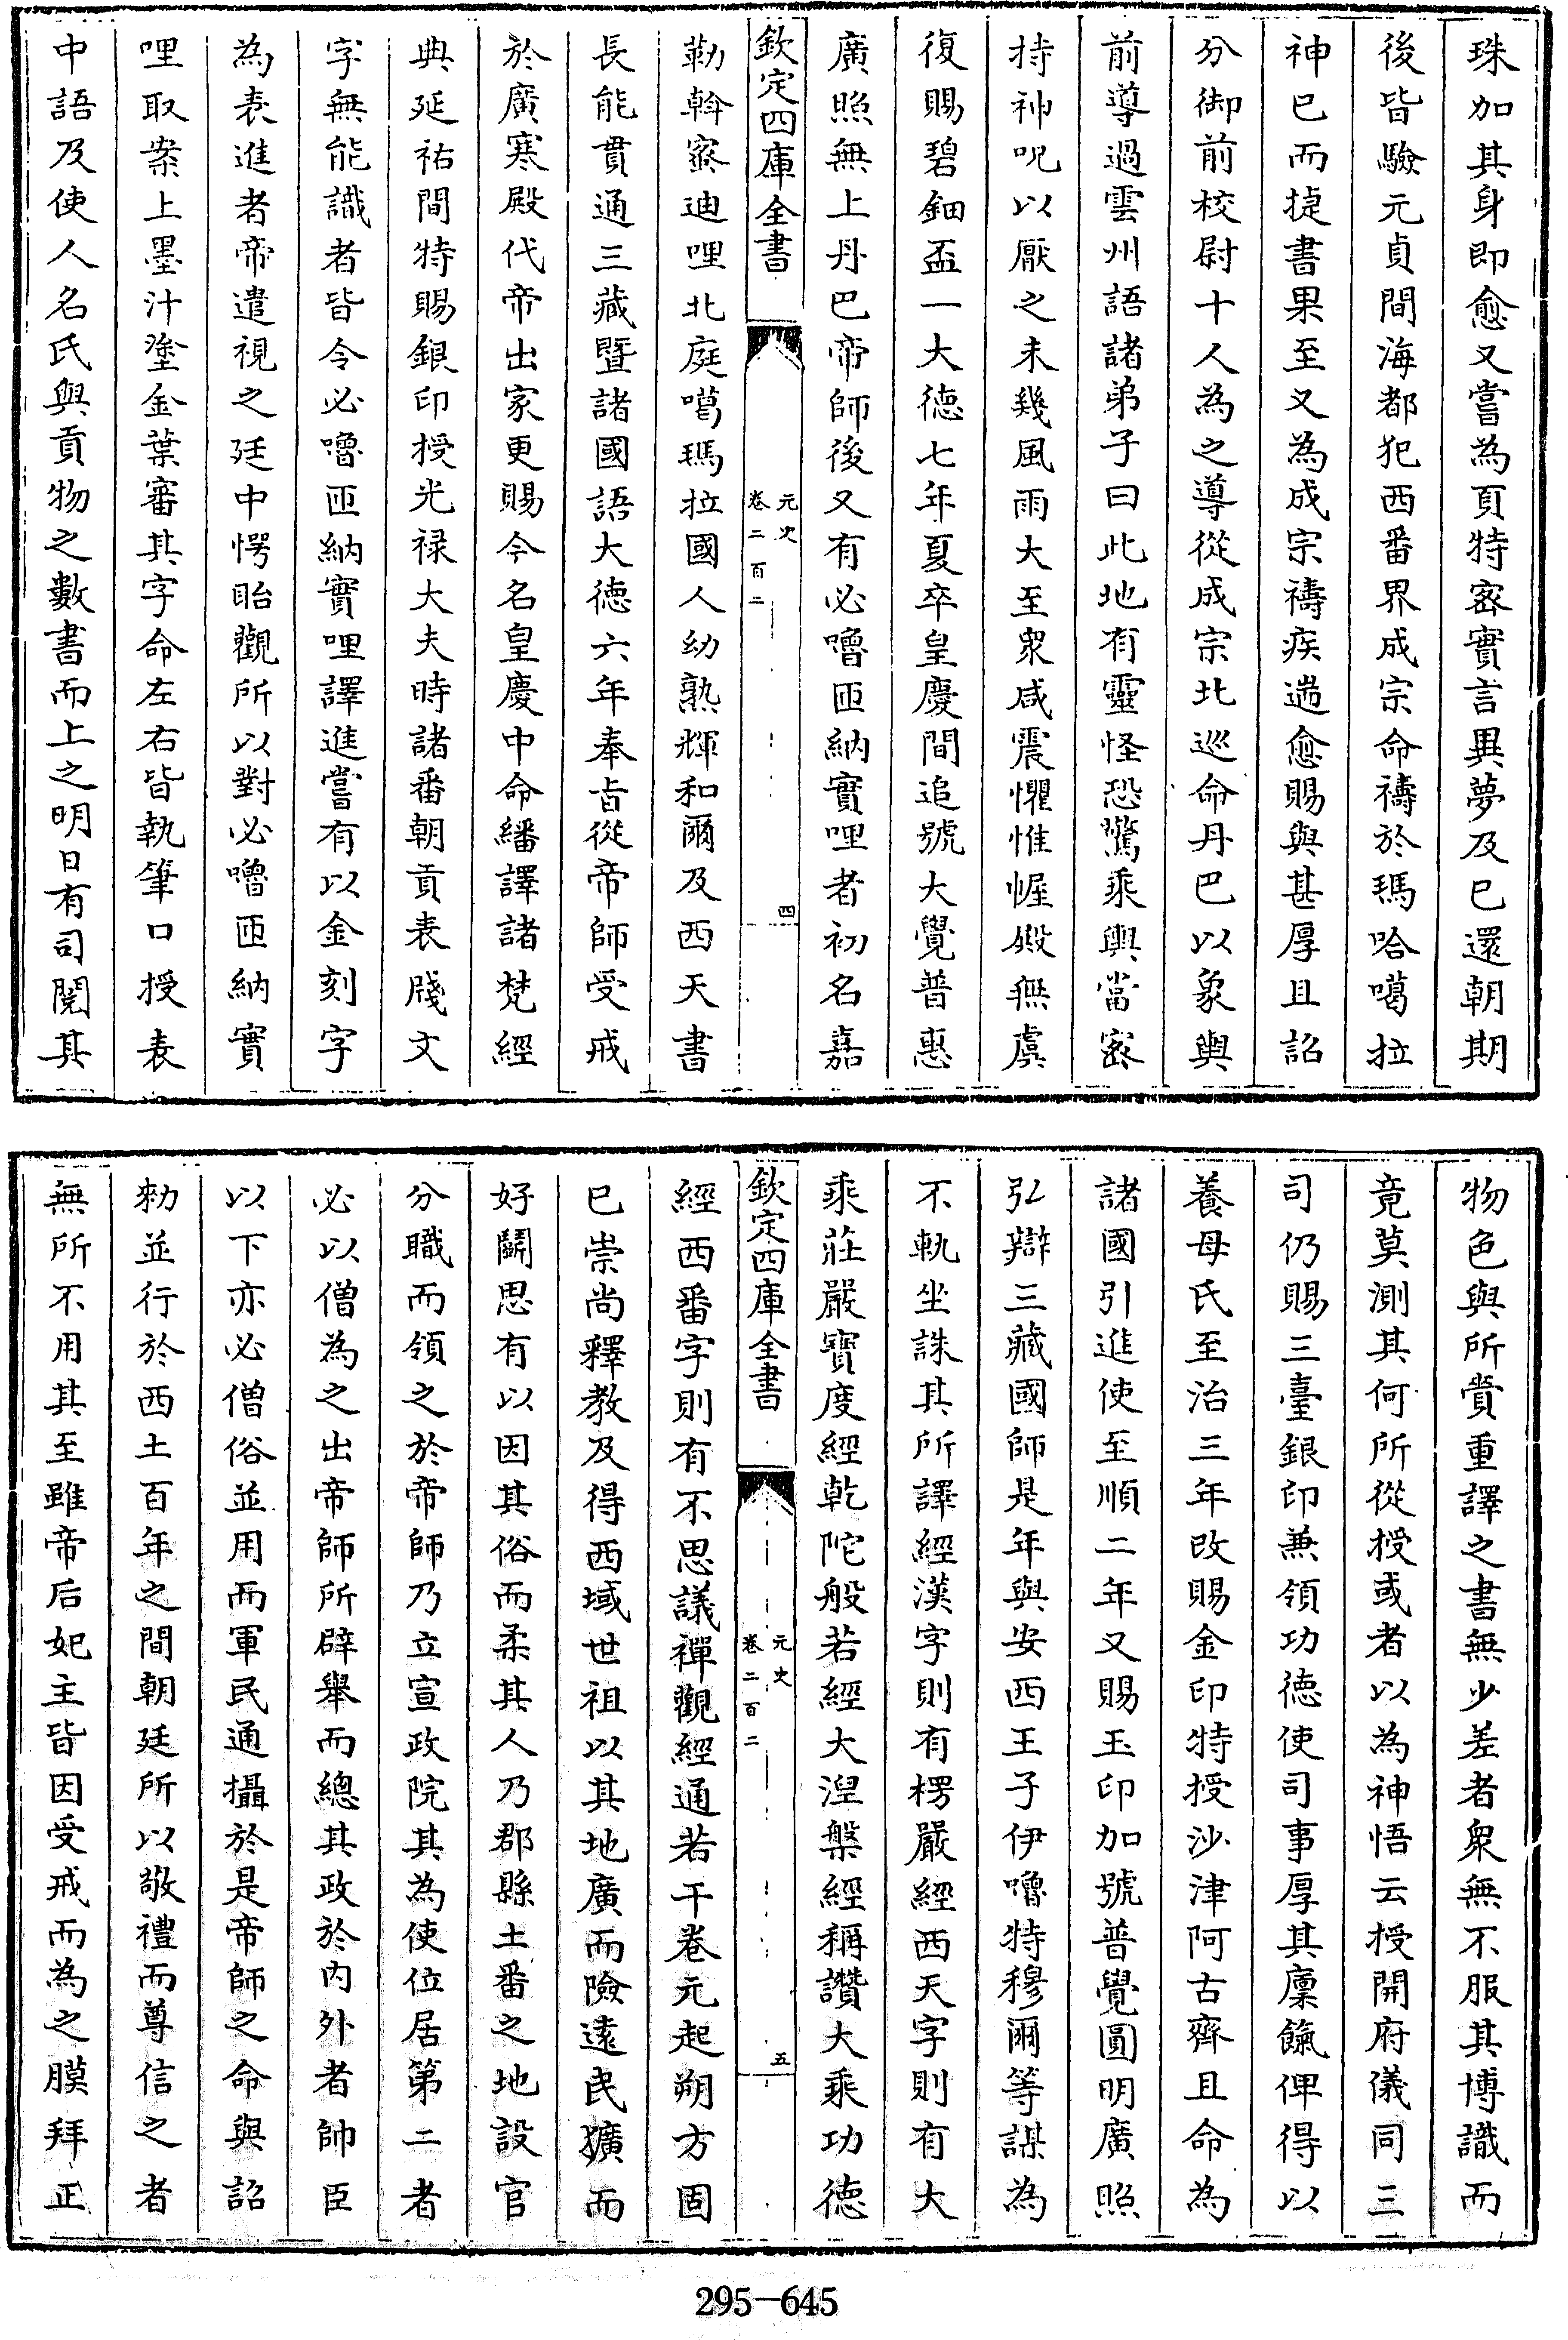 珠加其身即愈又嘗為頁特密實言異夢及已還朝期
後皆驗元貞間海都犯西番界成宗命禱於瑪哈噶拉
神已而捷書果至又為成宗禱疾遄愈賜與甚厚且詔
分御前校尉十人為之導從成宗北巡命丹巴以象輿
前導過雲州語諸弟子曰此地有靈怪恐驚乘輿當密
持神呪以厭之未幾風雨大至衆咸震懼惟幄殿無虞
復賜碧鈿盃一大徳七年夏卒皇慶間追號大覺普惠
廣照無上丹巴帝師後又有必嚕匝納實哩者初名嘉
欽定四庫全書
元史
卷二百二
四
勒斡密迪哩北庭噶瑪拉國人幼熟輝和爾及西天書
長能貫通三藏暨諸國語大徳六年奉旨從帝師受戒
於廣寒殿代帝出家更賜今名皇慶中命繙譯諸梵經
典延祐間特賜銀印授光禄大夫時諸番朝貢表牋文
字無能識者皆令必嚕匝納實哩譯進嘗有以金刻字
為表進者帝遣視之廷中愕眙觀所以對必嚕匝納實
哩取案上墨汁塗金葉審其字命左右皆執筆口授表
中語及使人名氏與貢物之數書而上之明日有司閱其
物色與所賞重譯之書無少差者衆無不服其博識而
竟莫測其何所從授或者以為神悟云授開府儀同三
司仍賜三臺銀印兼領功徳使司事厚其廩餼俾得以
養母氏至治三年改賜金印特授沙津阿古齊且命為
諸國引進使至順二年又賜玉印加號普覺圓明廣照
弘辯三藏國師是年與安西王子伊嚕特穆爾等謀為
不軌坐誅其所譯經漢字則有楞嚴經西天字則有大
乘莊嚴寶度經乾陀般若經大涅槃經稱讚大乘功徳
欽定四庫全書
元史
卷二百二
五
經西番字則有不思議禪觀經通若干卷元起朔方固
已崇尚釋教及得西域世祖以其地廣而險遠民獷而
好鬭思有以因其俗而柔其人乃郡縣土番之地設官
分職而領之於帝師乃立宣政院其為使位居第二者
必以僧為之出帝師所辟舉而總其政於内外者帥臣
以下亦必僧俗並用而軍民通攝於是帝師之命與詔
勑並行於西土百年之間朝廷所以敬禮而尊信之者
無所不用其至雖帝后妃主皆因受戒而為之膜拜正
295-645